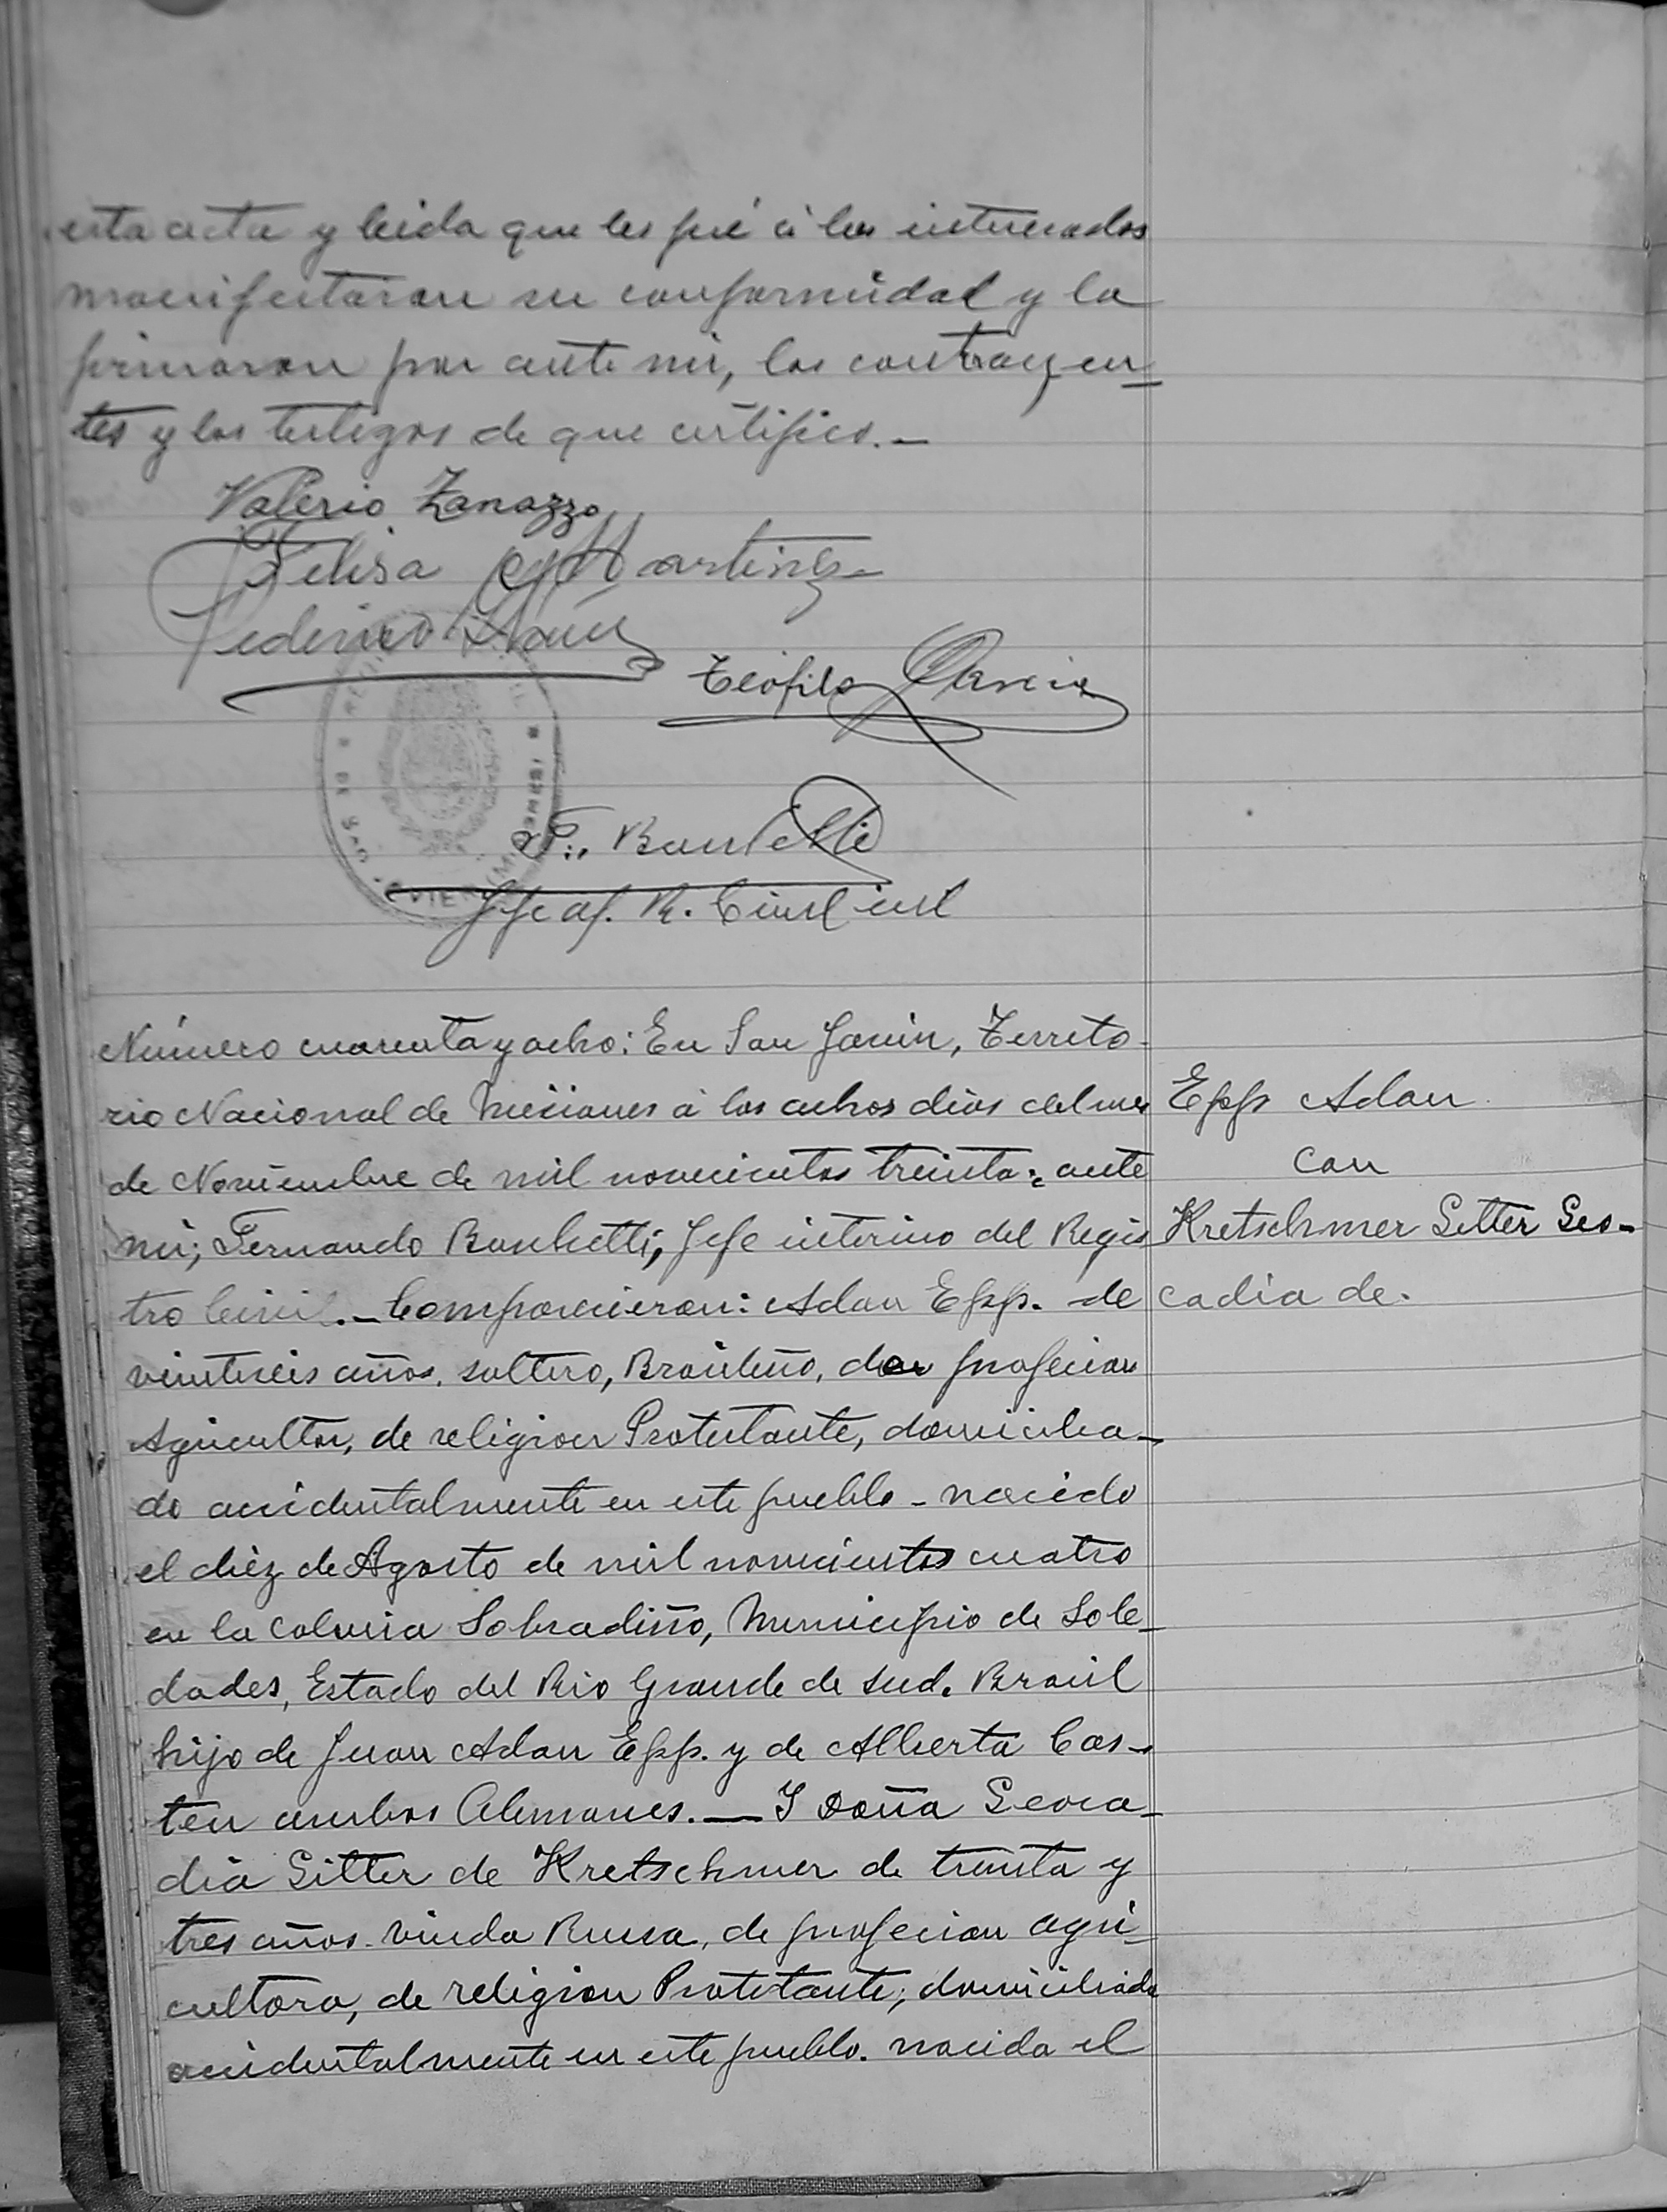 esta acta y leida que les fué á los interesados
manifestaron su conformidad y la
firmaron por ante mi, los contrayen-
tes y los testigos de que certifico.-
Valerio Zanazzo
Felisa Martinez
Federico
Teófilo Garcia
F. Banchetti
Jefe R. Civil
Número cuarenta y ocho: En San Javier, Territo-
rio Nacional de Misiones á los ochos dias del mes
de Noviembre de mil novecientos treinta: ante
mi; Fernando Banchetti, Jefe interino del Regis
tro Civil.- Comparecieron: Adan Epp. de
veintiseis años, soltero, Brasileño, de profecion
Agricultor, de religion Protestante, domicilia-
do accidentalmente en este pueblo - nacido
el diéz de Agosto de mil novecientos cuatro
en la Colonia Sobradiño, Municipio de Sole-
dades, Estado del Rio Grande de Sud. Brasil
hijo de Juan Adan Epp. y de Alberta Cas-
ten ambos Alemanes.— I Doña Leoca-
dia Litter de Kretschmer de treinta y
tres años. viuda Rusa, de profecion agri-
cultora, de religion Protetante; domiciliada
accidentalmente en este pueblo. nacida el
Epp Adan
Con
Kretschmer Litter Leo-
cadia de.